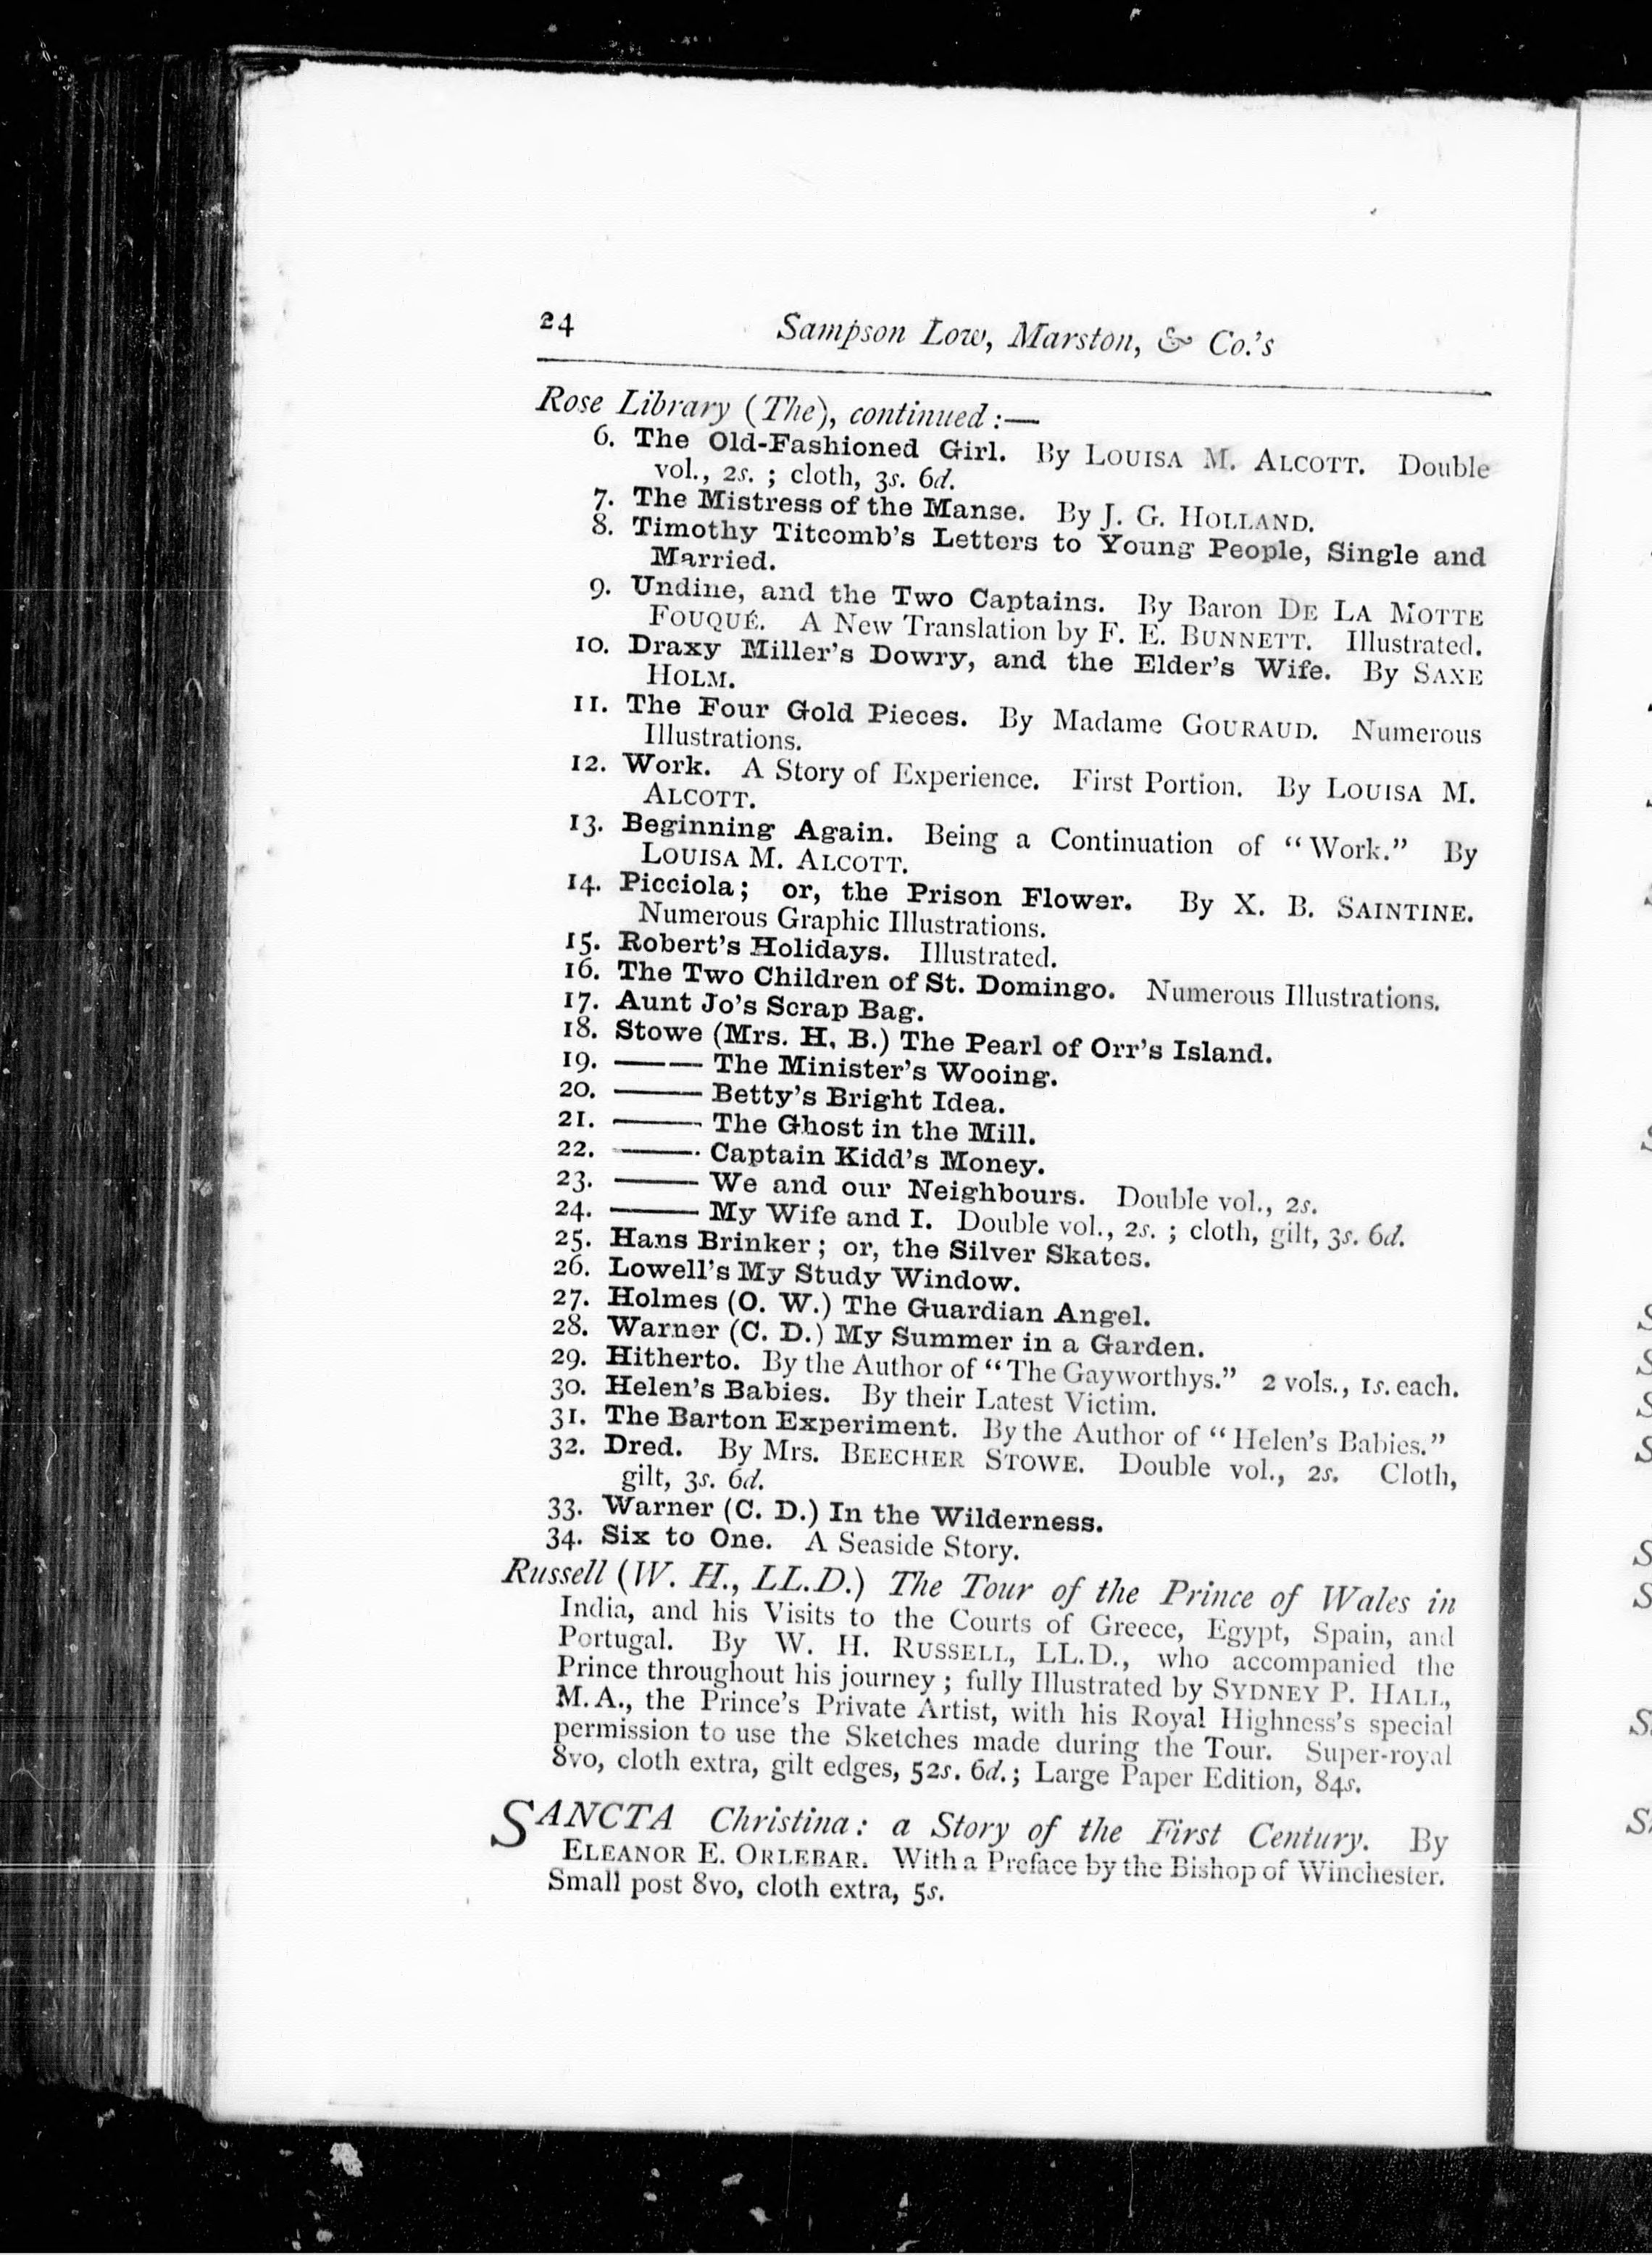 24 Sampson Low, Marston, & Co.'s
Rose Library (The), continued :—
6. The Old-Fashioned Girl. By LOUISA M. ALCOTT. Double
vol., 2s. ; cloth, 3s. 6d.
7. The Mistress of the Manse. By J. G. HOLLAND.
8. Timothy Titcomb's Letters to Young People, Single and
Married.
9. Undine, and the Two Captains. By Baron DE LA MOTTE
FOUQUÉ. A New Translation by F. E. BUNNETT. Illustrated.
10. Draxy Miller's Dowry, and the Elder's Wife. By SAXE
HOLM.
11. The Four Gold Pieces. By Madame GOURAUD. Numerous
Illustrations.
12. Work. A Story of Experience. First Portion. By LOUISA M.
ALCOTT.
13. Beginning Again. Being a Continuation of "Work." By
LOUISA M. ALCOTT.
14. Picciola; or, the Prison Flower. By X. B. SAINTINE.
Numerous Graphic Illustrations.
15. Robert's Holidays. Illustrated.
16. The Two Children of St. Domingo. Numerous Illustrations.
17. Aunt Jo's Scrap Bag.
18. Stowe (Mrs. H. B.) The Pearl of Orr's Island.
19. —— The Minister's Wooing.
20. —— Betty's Bright Idea.
21. —— The Ghost in the Mill.
22. —— Captain Kidd's Money.
23. —— We and our Neighbours. Double vol., 2s.
24. —— My Wife and I. Double vol., 2s. ; cloth, gilt, 3s. 6d.
25. Hans Brinker; or, the Silver Skates.
26. Lowell's My Study Window.
27. Holmes (O. W.) The Guardian Angel.
28. Warner (C. D.) My Summer in a Garden.
29. Hitherto. By the Author of "The Gayworthys." 2 vols., 1s. each.
30. Helen's Babies. By their Latest Victim.
31. The Barton Experiment. By the Author of "Helen's Babies."
32. Dred. By Mrs. BEECHER STOWE. Double vol., 2s. Cloth,
gilt, 3s. 6d.
33. Warner (C. D.) In the Wilderness.
34. Six to One. A Seaside Story.
Russell (W. H., LL.D.) The Tour of the Prince of Wales in
India, and his Visits to the Courts of Greece, Egypt, Spain, and
Portugal. By W. H. RUSSELL, LL.D., who accompanied the
Prince throughout his journey ; fully Illustrated by SYDNEY P. HALL,
M.A., the Prince's Private Artist, with his Royal Highness's special
permission to use the Sketches made during the Tour. Super-royal
8vo, cloth extra, gilt edges, 52s. 6d.; Large Paper Edition, 84s.
SANCTA Christina: a Story of the First Century. By
ELEANOR E. ORLEBAR. With a Preface by the Bishop of Winchester.
Small post 8vo, cloth extra, 5s.